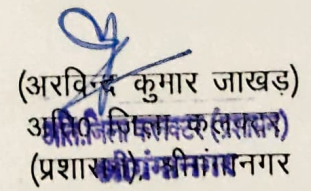 (अरविन्द कुमार जाखड़)
अति० जिला कलक्टर
(प्रशासन), श्रीगंगानगर